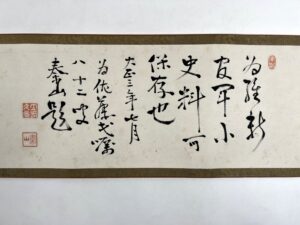 為維新
官军小
史料可
保存也
大正三年七月
為佐藤君嘱
八十二叟
泰山題